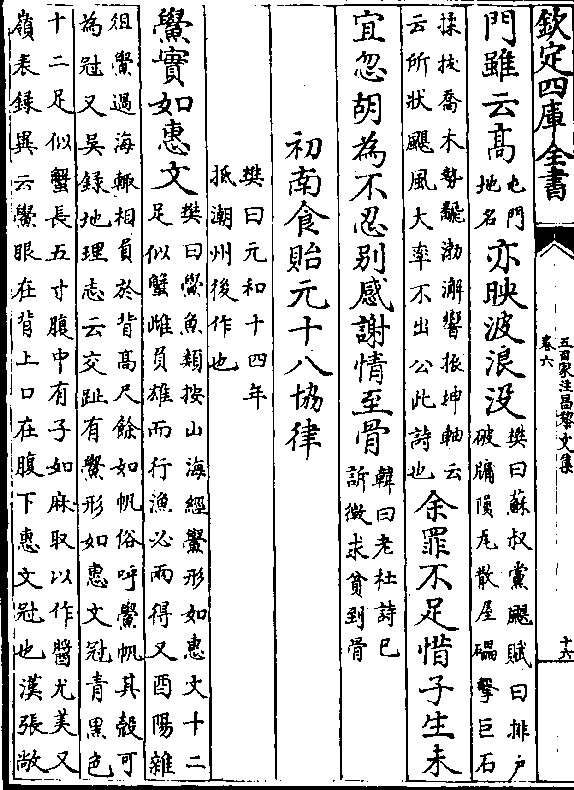 欽定四庫全書
五百家注昌黎文集
卷六
十六
門雖云髙
屯門
地名
亦映波浪没
樊曰蘇叔黨颶賦曰排戸
破牖隕瓦散屋礧擊巨石
揉拔喬木勢飜渤澥響振坤軸云
云所狀颶風大率不出公此詩也
余罪不足惜子生未
宜忽胡為不忍别感謝情至骨
韓曰老杜詩已
訴徴求貧到骨
初南食貽元十八協律
樊曰元和十四年
抵潮州後作也
鱟實如惠文
樊曰鱟魚類按山海經鱟形如惠文十二
足似蟹雌負雄而行漁必兩得又酉陽雜
俎鱟過海輙相負於背髙尺餘如帆俗呼鱟帆其殼可
為冠又吳録地理志云交趾有鱟形如惠文冠青黑色
十二足似蟹長五寸腹中有子如麻取以作醬尤美又
嶺表録異云鱟眼在背上口在腹下惠文冠也漢張敞